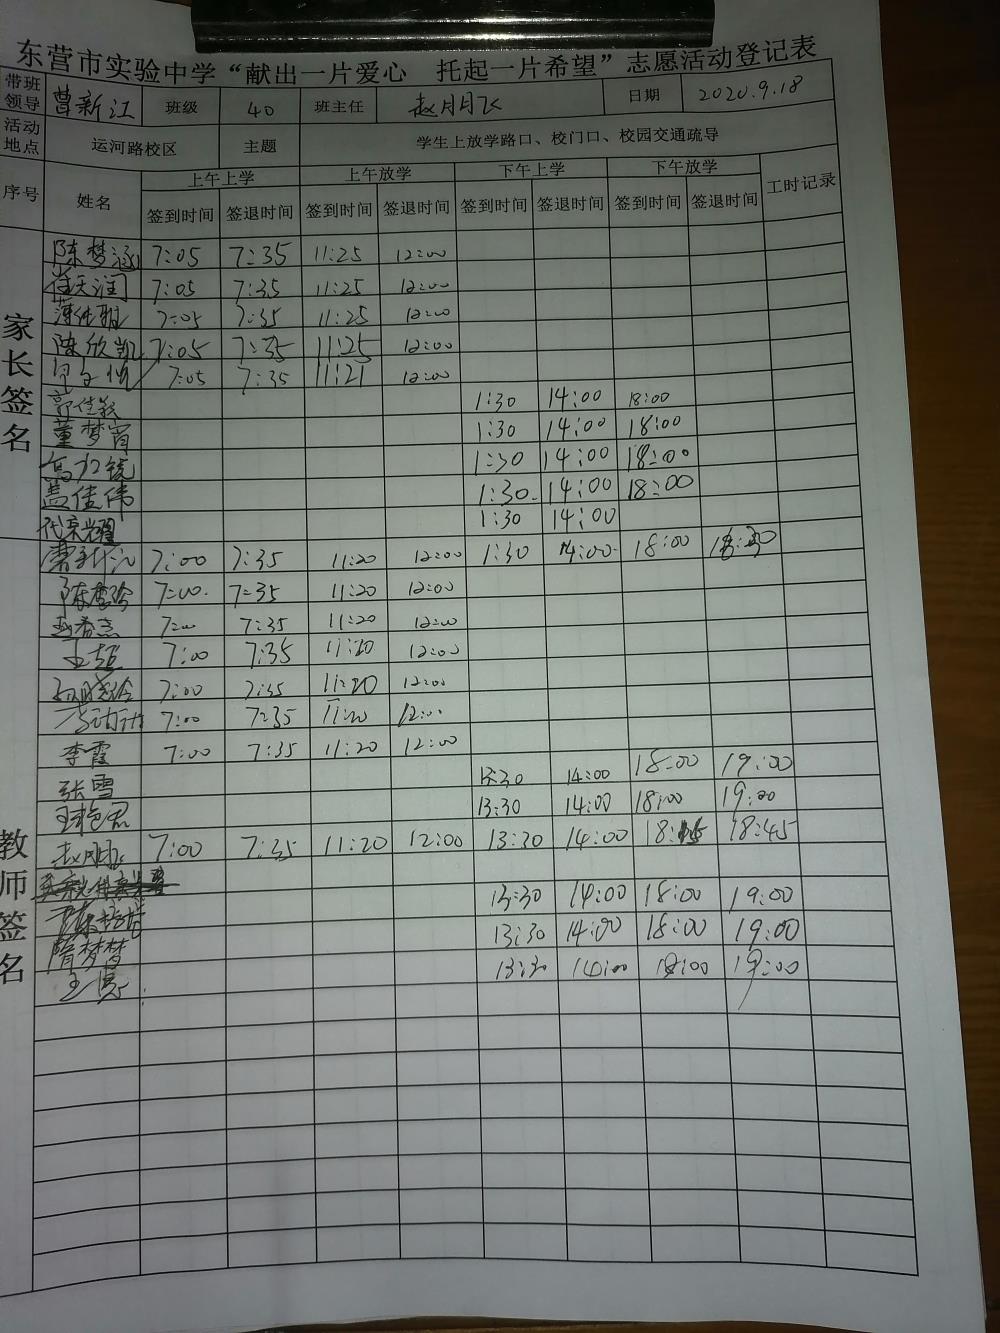 东营市实验中学“献出一片爱心 托起一片希望”志愿活动登记表
带班领导 曹新江 班级 40 班主任 赵月飞 日期 2020.9.18
活动地点 运河路校区 主题 学生上放学路口、校门口、校园交通疏导
序号 姓名 上午上学 上午放学 下午上学 下午放学 工时记录
签到时间 签退时间 签到时间 签退时间 签到时间 签退时间 签到时间 签退时间
家长签名
陈梦涵 7:05 7:35 11:25 12:00
任天润 7:05 7:35 11:25 12:00
7:05 7:35 11:25 12:00
陈欣凯 7:05 7:35 11:25 12:00
7:05 7:35 11:21 12:00
郭佳毅 1:30 14:00 18:00
董梦宵 1:30 14:00 18:00
1:30 14:00 18:00
盖佳伟 1:30 14:00 18:00
代荣耀 1:30 14:00
教师签名
曹新江 7:00 7:35 11:20 12:00 1:30 14:00 18:00 18:30
7:00 7:35 11:20 12:00
7:00 7:35 11:20 12:00
王超 7:00 7:35 11:20 12:00
7:00 7:35 11:20 12:00
7:00 7:35 11:20 12:00
李霞 7:00 7:35 11:20 12:00
张雪 13:30 14:00 18:00 19:00
13:30 14:00 18:00 19:00
赵月飞 7:00 7:35 11:20 12:00 13:30 14:00 18:15 18:45
13:30 14:00 18:00 19:00
隋梦梦 13:30 14:00 18:00 19:00
王亮 13:30 14:00 18:00 19:00